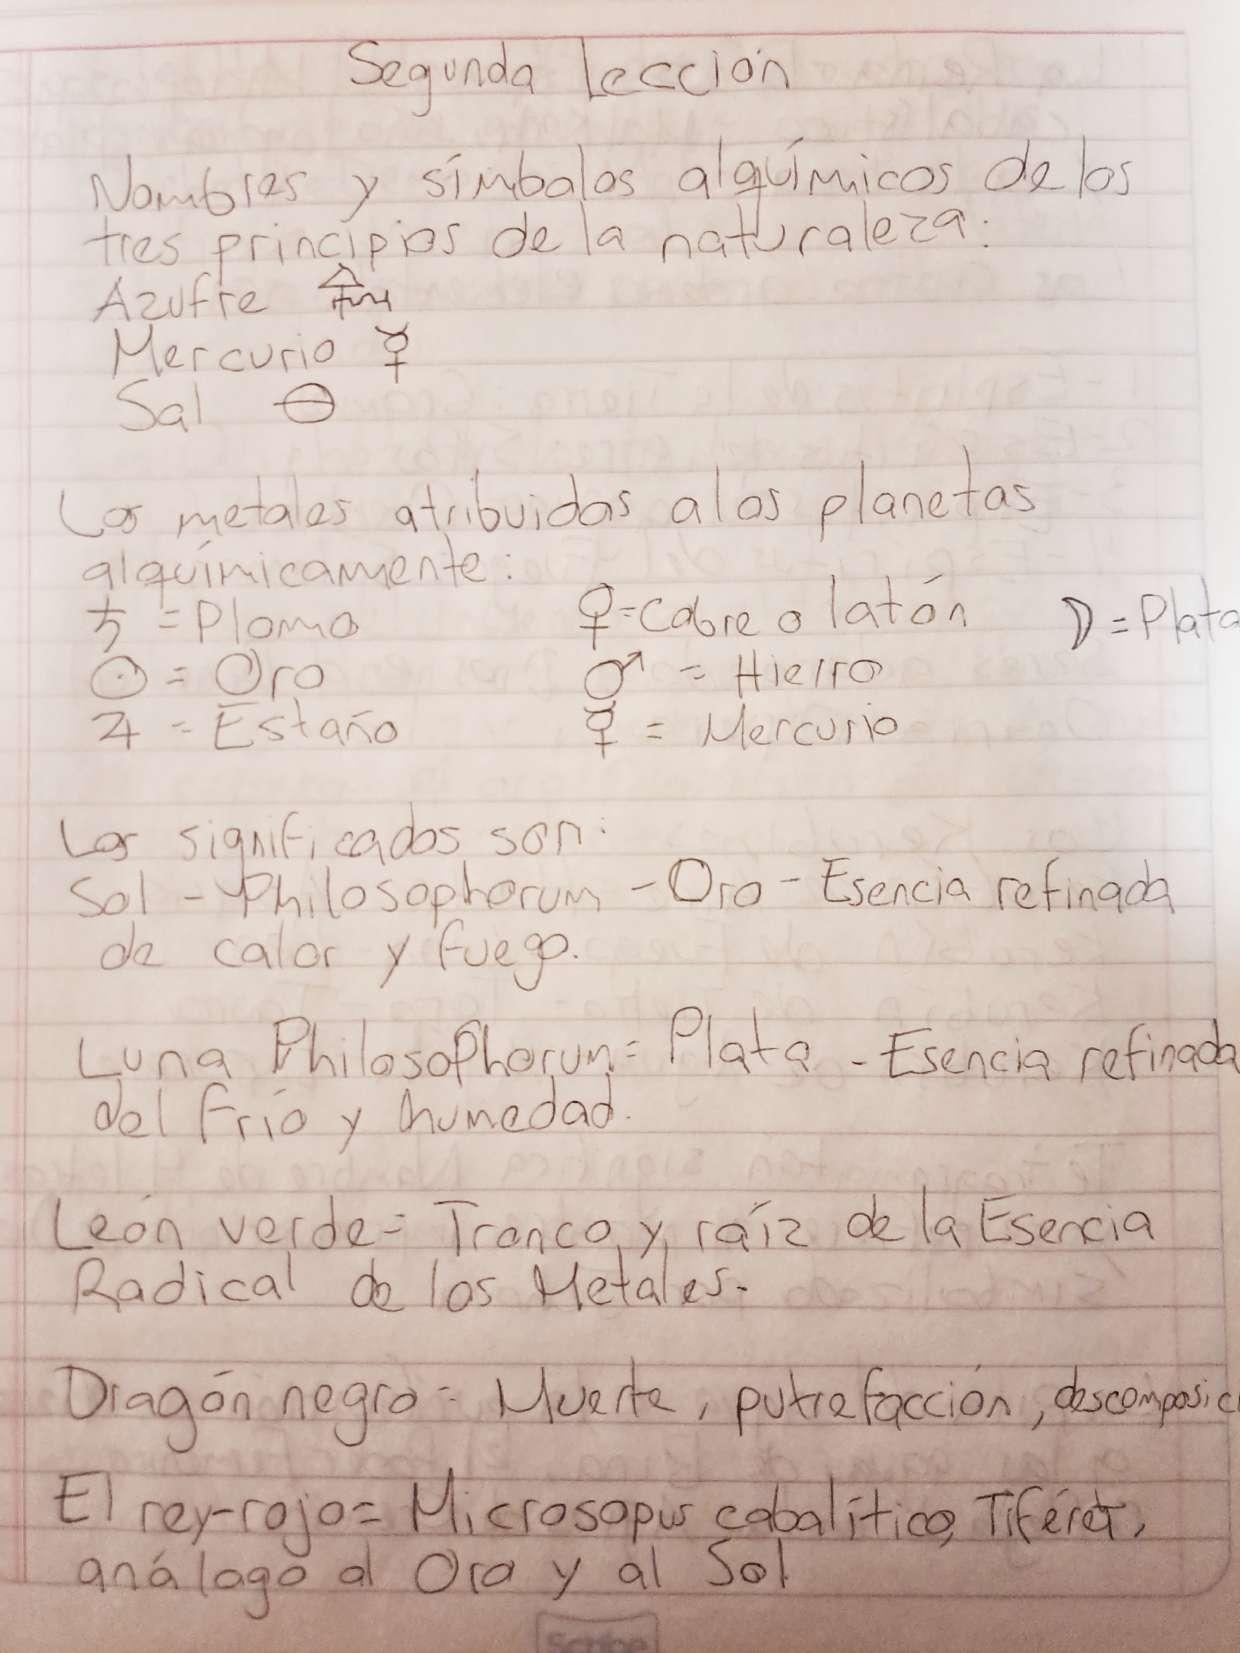 Segunda lección
Nombres y símbolos alquímicos de los
tres principios de la naturaleza:
Azufre 🜍
Mercurio ☿
Sal ⊖
Los metales atribuidos a los planetas
alquímicamente:
♄ = Plomo ♀ = Cobre o latón ☽ = Plata
☉ = Oro ♂ = Hierro
♃ = Estaño ☿ = Mercurio
Los significados son:
Sol - Philosophorum - Oro - Esencia refinada
de calor y fuego.
Luna Philosophorum = Plata - Esencia refinada
del frío y humedad.
León verde = Tronco y raíz de la Esencia
Radical de los Metales.
Dragón negro = Muerte, putrefacción, descomposic
El rey-rojo = Microsopus cabalítico, Tiféret,
análogo al Oro y al Sol
Scribe